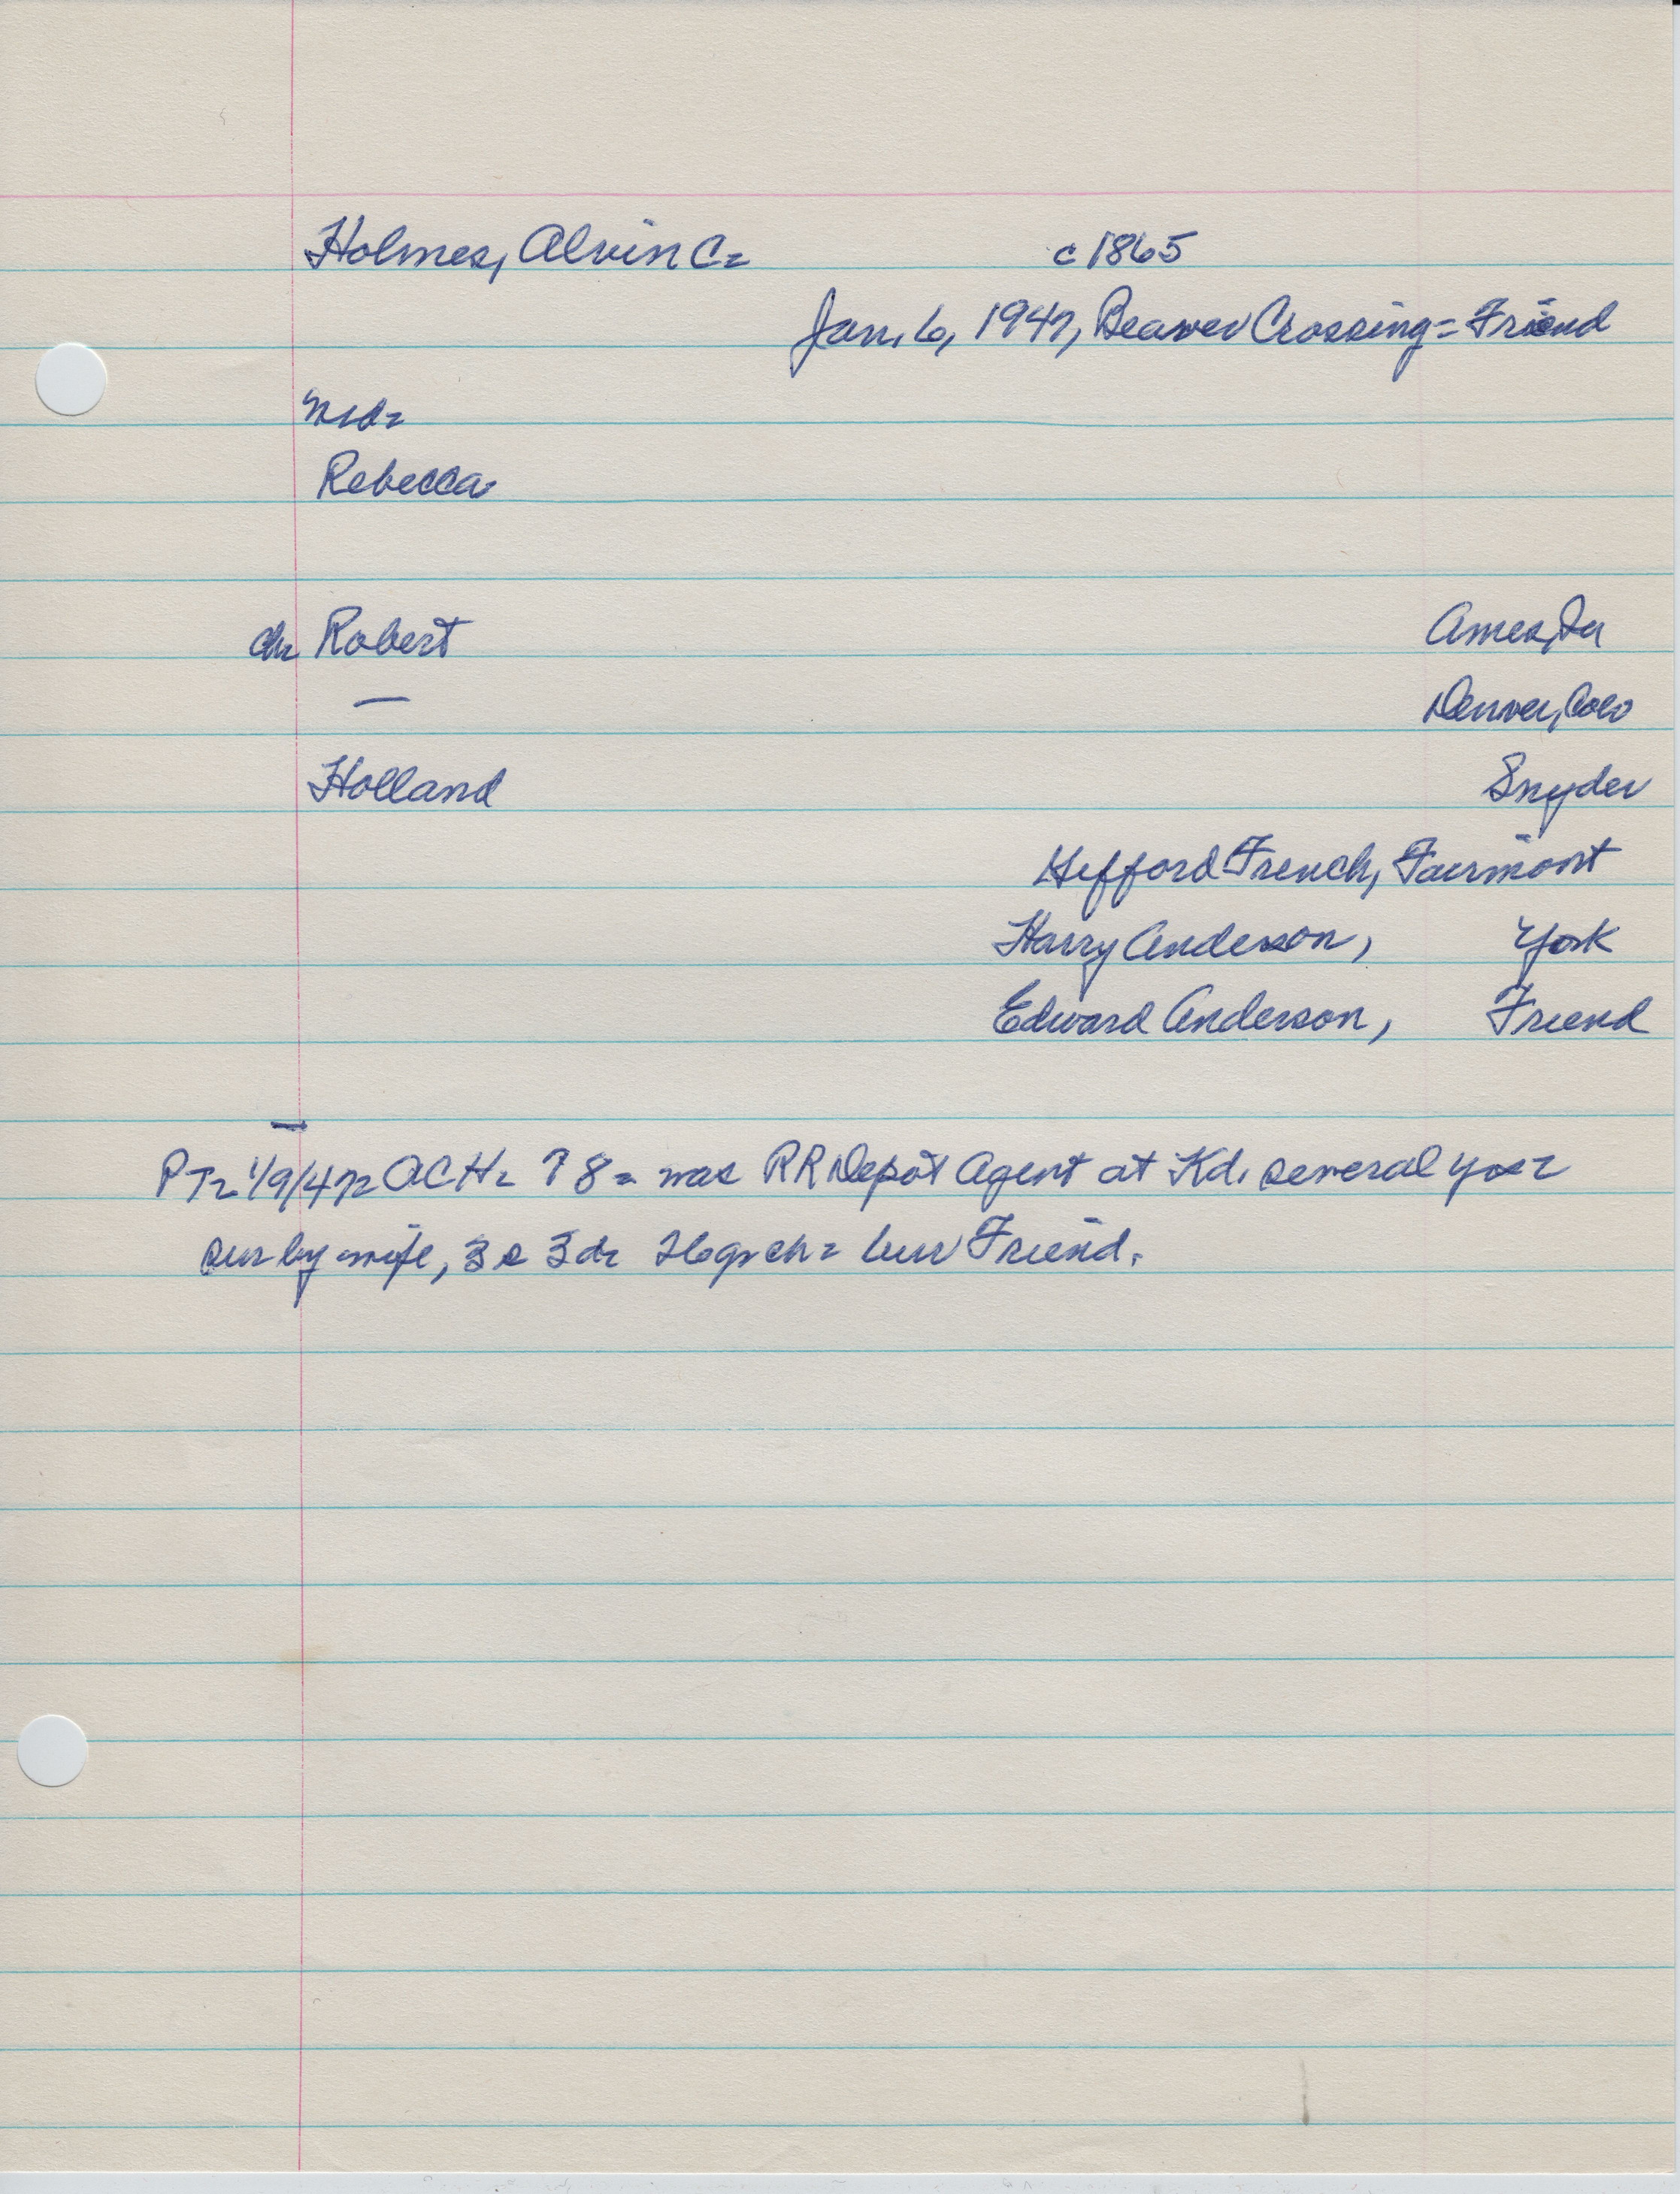 Holmes, Alvin C= c 1865
Jan. 6, 1947, Beaver Crossing = Friend
md=
Rebecca
ch= Robert Ames, Ia
— Denver, Colo
Holland Snyder
Hefford French, Fairmont
Harry Anderson, York
Edward Anderson, Friend
PT= 1/9/47= ACH= 78= was RR Depot Agent at Kd. several yrs=
sur by wife, 3 s 3 d= 26 gr ch= bur Friend.